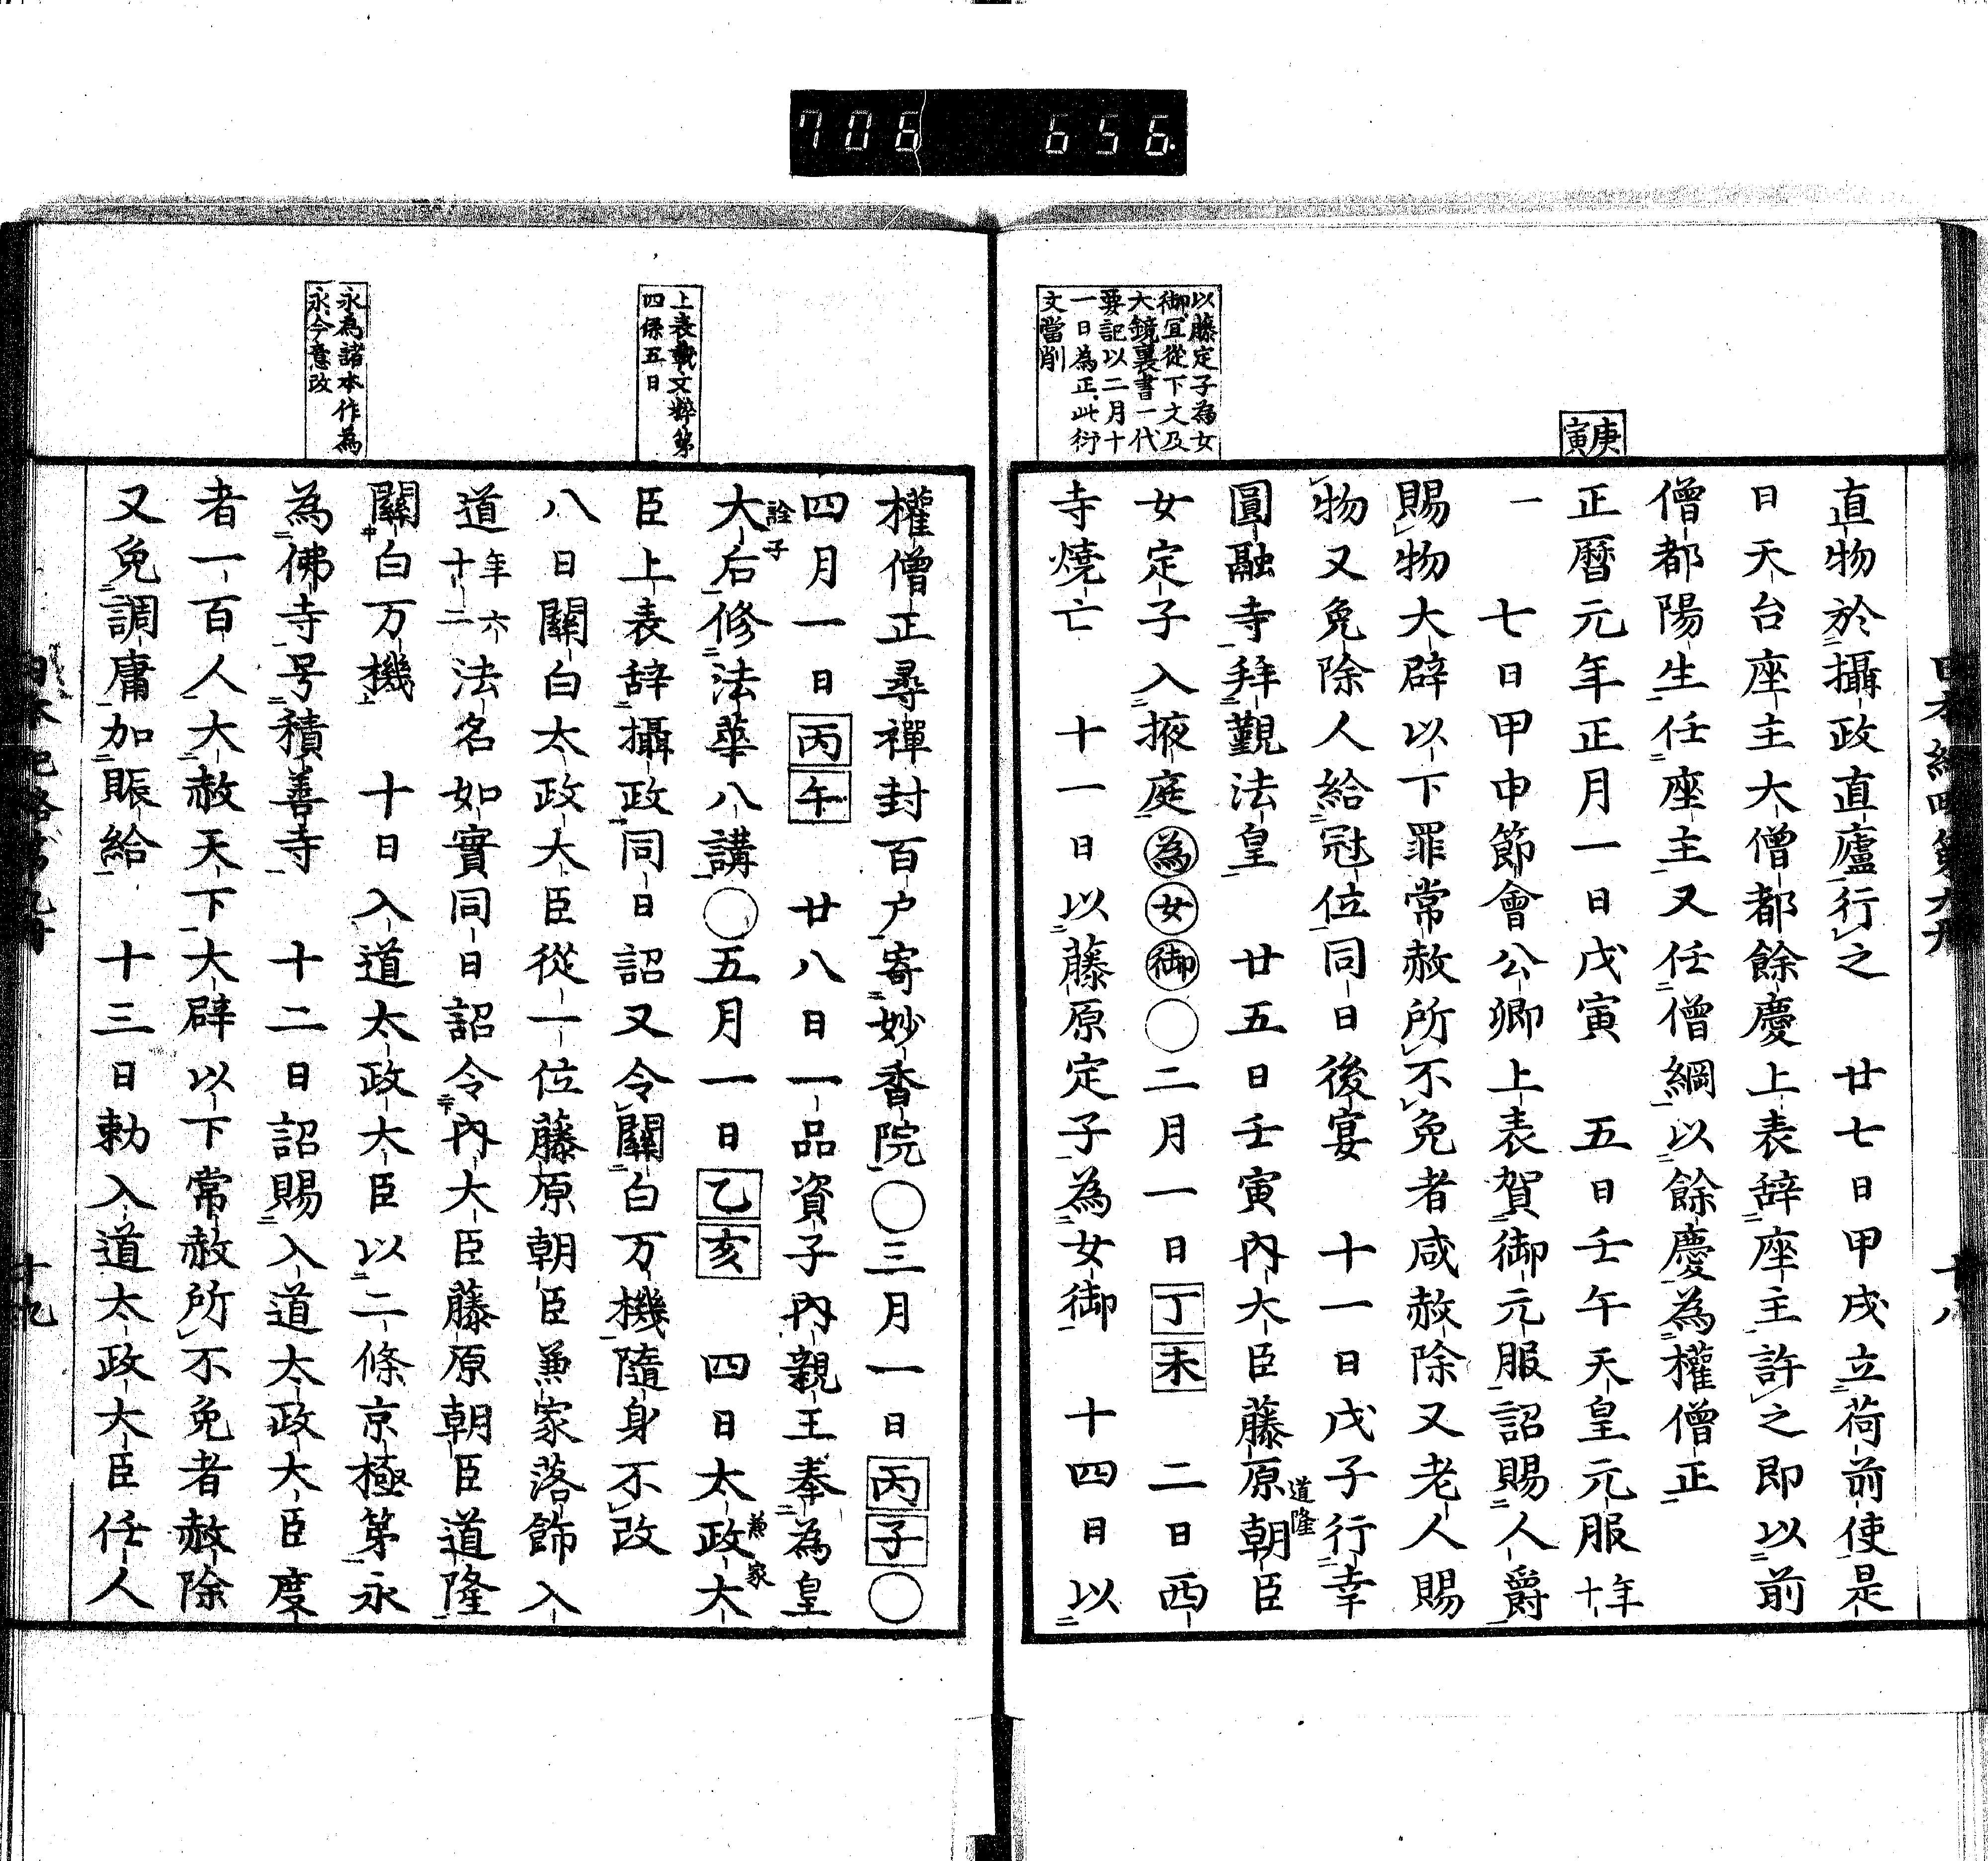 706 656
庚寅
以藤定子為女
御宜從下文及
大鏡裏書一代
要記以二月十
一日為正此衍
文當削
直物於攝政直廬行之 廿七日甲戌立荷前使是
日天台座主大僧都餘慶上表辞座主許之即以前
僧都陽生任座主又任僧綱以餘慶為權僧正
正暦元年正月一日戊寅 五日壬午天皇元服年十
一 七日甲申節會公卿上表賀御元服詔賜人爵
賜物大辟以下罪常赦所不免者咸赦除又老人賜
物又免除人給冠位同日後宴 十一日戊子行幸
圓融寺拜覲法皇 廿五日壬寅內大臣藤原朝臣
道隆
女定子入掖庭為女御○二月一日丁未 二日西
寺燒亡 十一日以藤原定子為女御 十四日以
十八
上表載文粹第
四係五日
永為諸本作為
永今意改
權僧正尋禪封百户寄妙香院○三月一日丙子○
四月一日丙午 廿八日一品資子內親王奉為皇
詮子
大后修法華八講○五月一日乙亥 四日太政大
兼家
臣上表辞攝政同日詔又令關白万機隨身不改
八日關白太政大臣從一位藤原朝臣兼家落飾入
道年六十二法名如實同日詔令內大臣藤原朝臣道隆
關白万機 十日入道太政大臣以二條京極第永
為佛寺号積善寺 十二日詔賜入道太政大臣度
者一百人大赦天下大辟以下常赦所不免者赦除
又免調庸加賑給 十三日勅入道太政大臣任人
十九